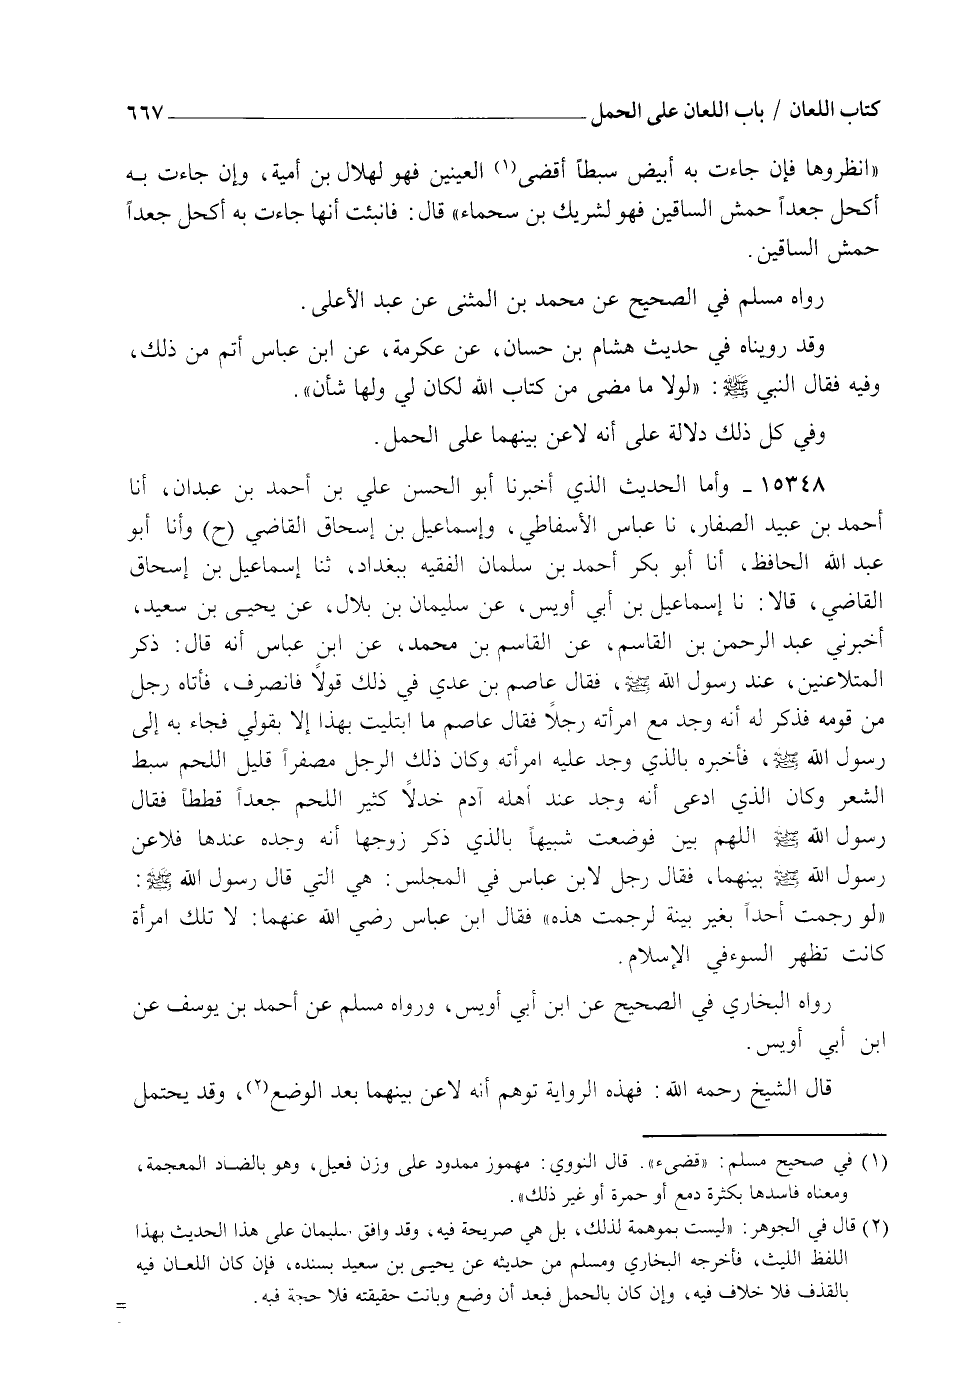 كتاب اللعان / باب اللعان على الحمل ٦٦٧
«انظروها فإن جاءت به أبيض سبطاً أقضى(١) العينين فهو لهلال بن أمية، وإن جاءت به
أكحل جعداً حمش الساقين فهو لشريك بن سحماء» قال: فانبئت أنها جاءت به أكحل جعداً
حمش الساقين.
رواه مسلم في الصحيح عن محمد بن المثنى عن عبد الأعلى.
وقد رويناه في حديث هشام بن حسان، عن عكرمة، عن ابن عباس أتم من ذلك،
وفيه فقال النبي ﷺ: «لولا ما مضى من كتاب الله لكان لي ولها شأن».
وفي كل ذلك دلالة على أنه لاعن بينهما على الحمل.
١٥٣٤٨ - وأما الحديث الذي أخبرنا أبو الحسن علي بن أحمد بن عبدان، أنا
أحمد بن عبيد الصفار، نا عباس الأسفاطي، وإسماعيل بن إسحاق القاضي (ح) وأنا أبو
عبد الله الحافظ، أنا أبو بكر أحمد بن سلمان الفقيه ببغداد، ثنا إسماعيل بن إسحاق
القاضي، قالا: نا إسماعيل بن أبي أويس، عن سليمان بن بلال، عن يحيى بن سعيد،
أخبرني عبد الرحمن بن القاسم، عن القاسم بن محمد، عن ابن عباس أنه قال: ذكر
المتلاعنين، عند رسول الله ﷺ، فقال عاصم بن عدي في ذلك قولًا فانصرف، فأتاه رجل
من قومه فذكر له أنه وجد مع امرأته رجلًا فقال عاصم ما ابتليت بهذا إلا بقولي فجاء به إلى
رسول الله ﷺ، فأخبره بالذي وجد عليه امرأته وكان ذلك الرجل مصفراً قليل اللحم سبط
الشعر وكان الذي ادعى أنه وجد عند أهله آدم خدلًا كثير اللحم جعداً قططاً فقال
رسول الله ﷺ اللهم بين فوضعت شبيهاً بالذي ذكر زوجها أنه وجده عندها فلاعن
رسول الله ﷺ بينهما، فقال رجل لابن عباس في المجلس: هي التي قال رسول الله ﷺ:
«لو رجمت أحداً بغير بينة لرجمت هذه» فقال ابن عباس رضي الله عنهما: لا تلك امرأة
كانت تظهر السوء في الإسلام.
رواه البخاري في الصحيح عن ابن أبي أويس، ورواه مسلم عن أحمد بن يوسف عن
ابن أبي أويس.
قال الشيخ رحمه الله: فهذه الرواية توهم أنه لاعن بينهما بعد الوضع(٢)، وقد يحتمل
(١) في صحيح مسلم: «قضىء». قال النووي: مهموز ممدود على وزن فعيل، وهو بالضاد المعجمة،
ومعناه فاسدها بكثرة دمع أو حمرة أو غير ذلك».
(٢) قال في الجوهر: «ليست بموهمة لذلك، بل هي صريحة فيه، وقد وافق سليمان على هذا الحديث بهذا
اللفظ الليث، فأخرجه البخاري ومسلم من حديثه عن يحيى بن سعيد بسنده، فإن كان اللعان فيه
بالقذف فلا خلاف فيه، وإن كان بالحمل فبعد أن وضع وبانت حقيقته فلا حجة فيه.
=